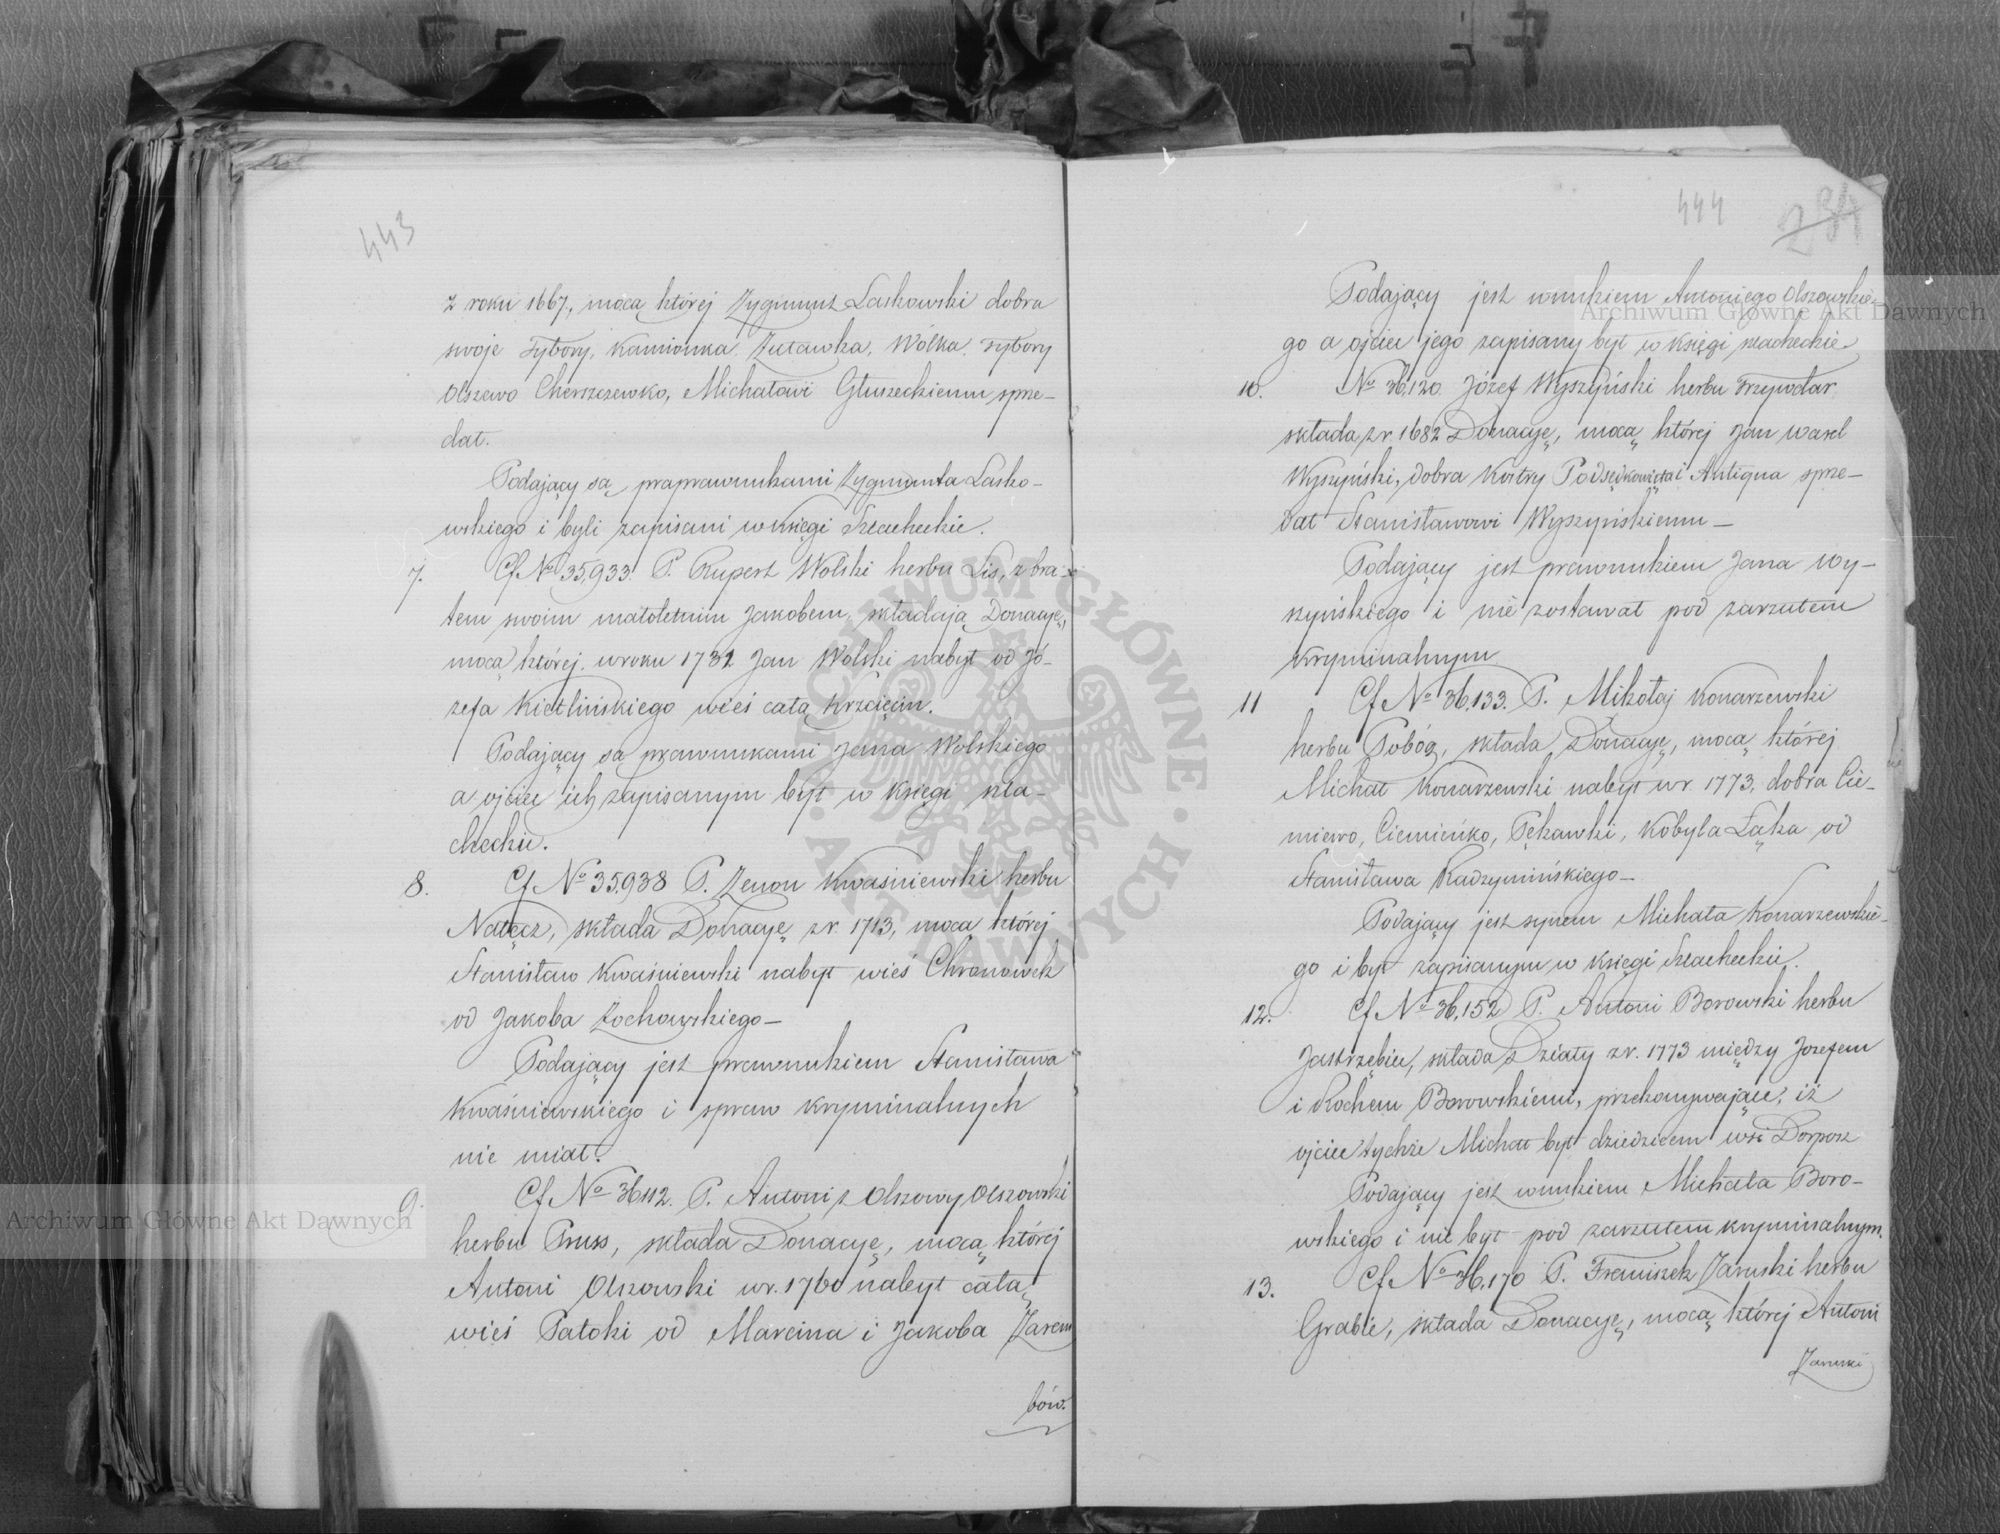 443
z roku 1667, mocą której Zygmunt Laskowski dobra
swoje Tybory, Kamionka, Żuławka, Wólka, Tybory
Olszewo Cherszczewko, Michałowi Głuszeckiemu sprze-
dał.
Podający są praprawnukami Zygmunta Lasko-
wskiego i byli zapisani w Księgi Szlacheckie.
7. Cf No 35,933. P. Rupert Wolski herbu Lis, z bra-
tem swoim małoletnim Jakobem, składają Donacyę,
mocą której w roku 1732 Jan Wolski nabył od Jó-
zefa Kietlińskiego wieś całą Krzcięcin.
Podający są prawnukami Jana Wolskiego
a ojciec ich zapisanym był w Księgi szla-
checkie.
8. Cf No 35,938 P. Zenon Kwaśniewski herbu
Nałęcz, składa Donacyę z r. 1713, mocą której
Stanisław Kwaśniewski nabył wieś Chronowek
od Jakoba Żochowskiego—
Podający jest prawnukiem Stanisława
Kwaśniewskiego i spraw kryminalnych
nie miał.
9. Cf No 36112. P. Antoni z Olszowy Olszowski
herbu Pruss, składa Donacyę, mocą której
Antoni Olszowski w r. 1760 nabył całą
wieś Patoki od Marcina i Jakoba Zarem
bów.
444
234
Podający jest wnukiem Antoniego Olszowskie-
go a ojciec jego zapisany był w Księgi szlacheckie
10. No 36,120. Józef Wyszyński herbu Trzywdar
składa z r. 1682 Donacyę, mocą której Jan Wawl
Wyszyński, dobra Kostry Podsędkowięta i Antiqua sprze-
dał Stanisławowi Wyszyńskiemu—
Podający jest prawnukiem Jana Wy-
szyńskiego i nie zostawał pod zarzutem
kryminalnym
11 Cf No 36,133. P. Mikołaj Konarzewski
herbu Pobóg, składa Donacyę, mocą której
Michał Konarzewski nabył w r. 1773, dobra Cie-
miewo, Ciemieńko, Pękawki, Kobyla Łąka od
Stanisława Radzymińskiego—
Podający jest synem Michała Konarzewskie-
go i był zapisanym w Księgi Szlacheckie.
12. Cf No 36,152 P. Antoni Borowski herbu
Jastrzębiec, składa Działy z r. 1773 między Jozefem
i Rochem Borowskiemi, przekonywające, iż
ojciec tychże Michał był dziedzicem wsi Dorposz
Podający jest wnukiem Michała Boro-
wskiego i nie był pod zarzutem kryminalnym.
13. Cf No 36,170 P. Franciszek Zaruski herbu
Grabie, składa Donacyę, mocą której Antoni
Zaruski
Archiwum Główne Akt Dawnych
Archiwum Główne Akt Dawnych
ARCHIWUM GŁÓWNE
AKT DAWNYCH